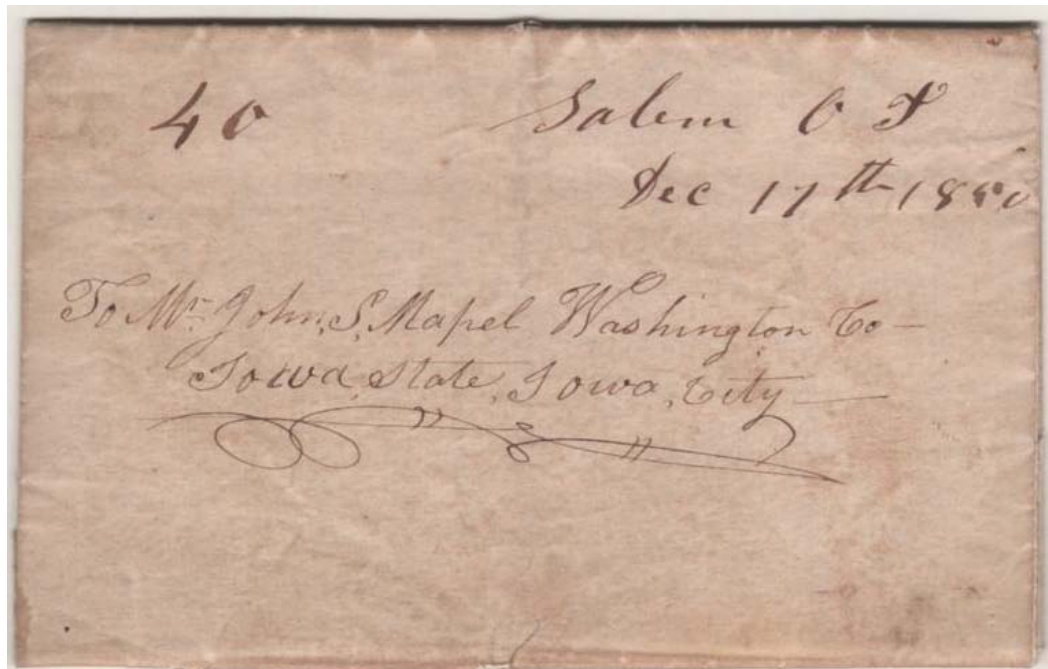 40 Salem O T
Dec 17th 1850
To Mr. John, S, Mapel Washington Co —
Iowa, State, Iowa, City —